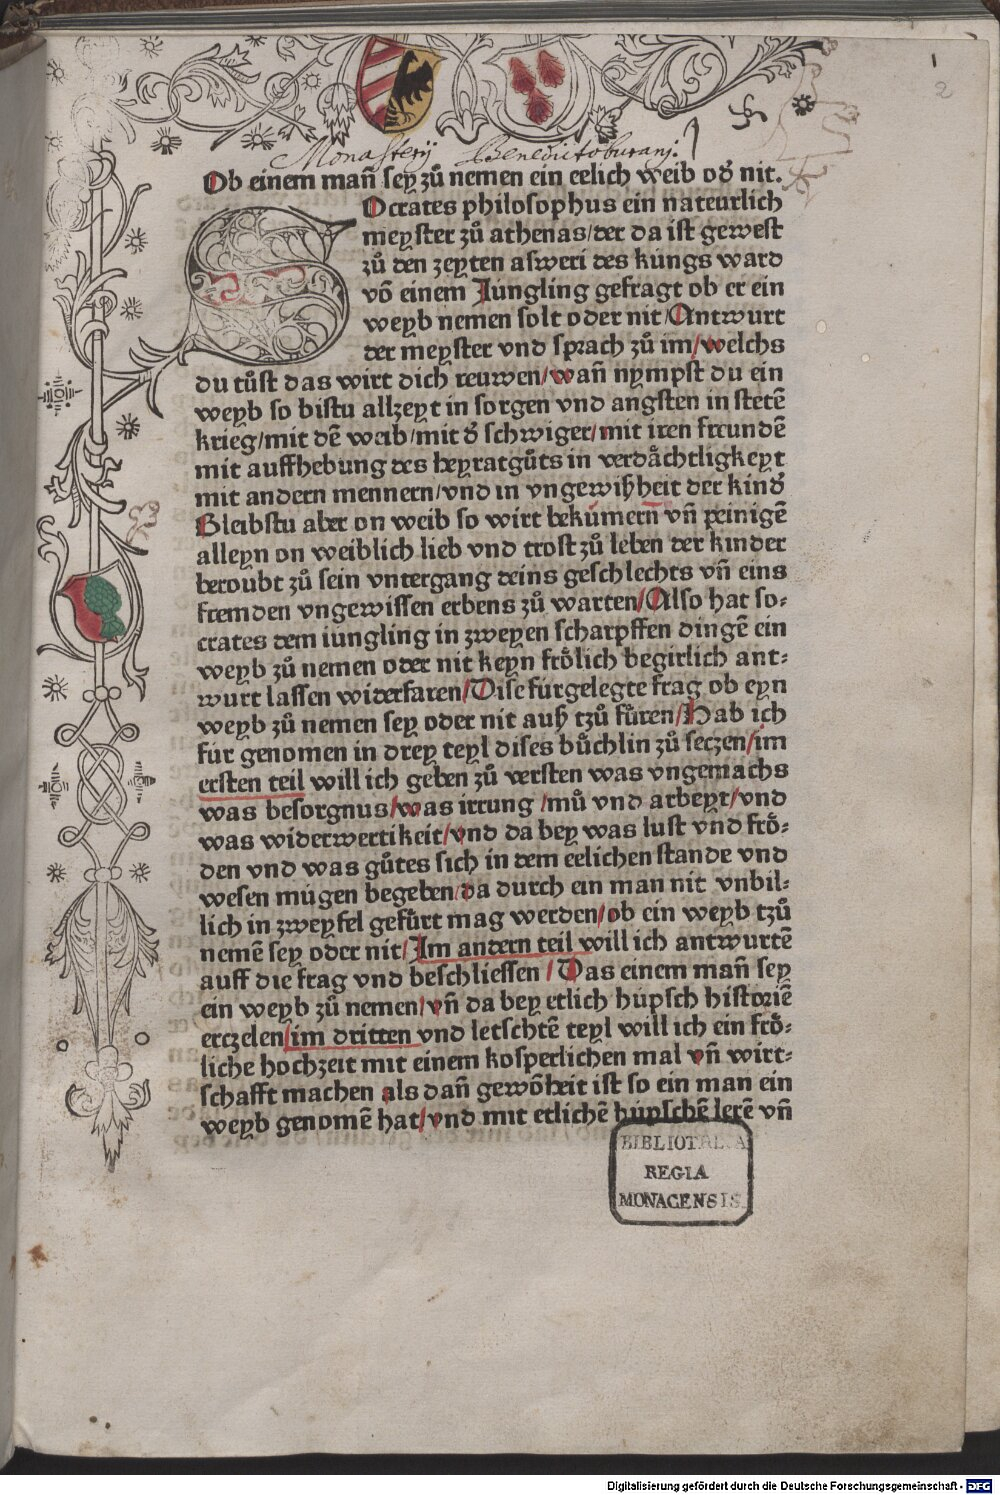 1
2
Monasterij Benedictoburanj.
Ob einem mañ sey zů nemen ein eelich weib oď nit.
Socrates philosophus ein nateurlich
meyster zů athenas/der da ist gewest
zů den zeyten asweri des kungs ward
võ einem Jungling gefragt ob er ein
weyb nemen solt oder nit/Antwurt
der meyster vnd sprach zů im/welchs
du tůst das wirt dich reuwen/wañ nympst du ein
weyb so bistu allzeyt in sorgen vnd angsten in stetē
krieg/mit dē weib/mit ď schwiger/mit iren freundē
mit auffhebung des heyratgůts in verdåchtligkeyt
mit andern mennern/vnd in vngewißheit der kinď
Bleibstu aber on weib so wirt bekúmern vñ peinigē
alleyn on weiblich lieb vnd trost zů leben der kinder
beroubt zů sein vntergang deins geschlechts vñ eins
fremden vngewissen erbens zů warten/Also hat so⸗
crates dem iungling in zweyen scharpffen dingē ein
weyb zů nemen oder nit keyn frőlich begirlich ant⸗
wurt lassen widerfaren/Dise fúrgelegte frag ob eyn
weyb zů nemen sey oder nit auß tzů fůren/Hab ich
fúr genomen in drey teyl dises bůchlin zů seczen/im
ersten teil will ich geben zů versten was vngemachs
was besorgnus/was irrung /mů vnd arbeyt/vnd
was widerwertikeit/vnd da bey was lust vnd frő⸗
den vnd was gůtes sich in dem eelichen stande vnd
wesen múgen begeben/da durch ein man nit vnbil⸗
lich in zweyfel gefůrt mag werden/ob ein weyb tzů
nemē sey oder nit/Im andern teil will ich antwurtē
auff die frag vnd beschliessen /Das einem mañ sey
ein weyb zů nemen/vñ da bey etlich húpsch historiē
erczelen/im dritten vnd letschtē teyl will ich ein frő⸗
liche hochzeit mit einem kosperlichen mal vñ wirt⸗
schafft machen als dañ gewõheit ist so ein man ein
weyb genomē hat/vnd mit etlichē húpschē lerē vñ
BIBLIOTHECA
REGIA
MONACENSIS.
Digitalisierung gefördert durch die Deutsche Forschungsgemeinschaft - DFG